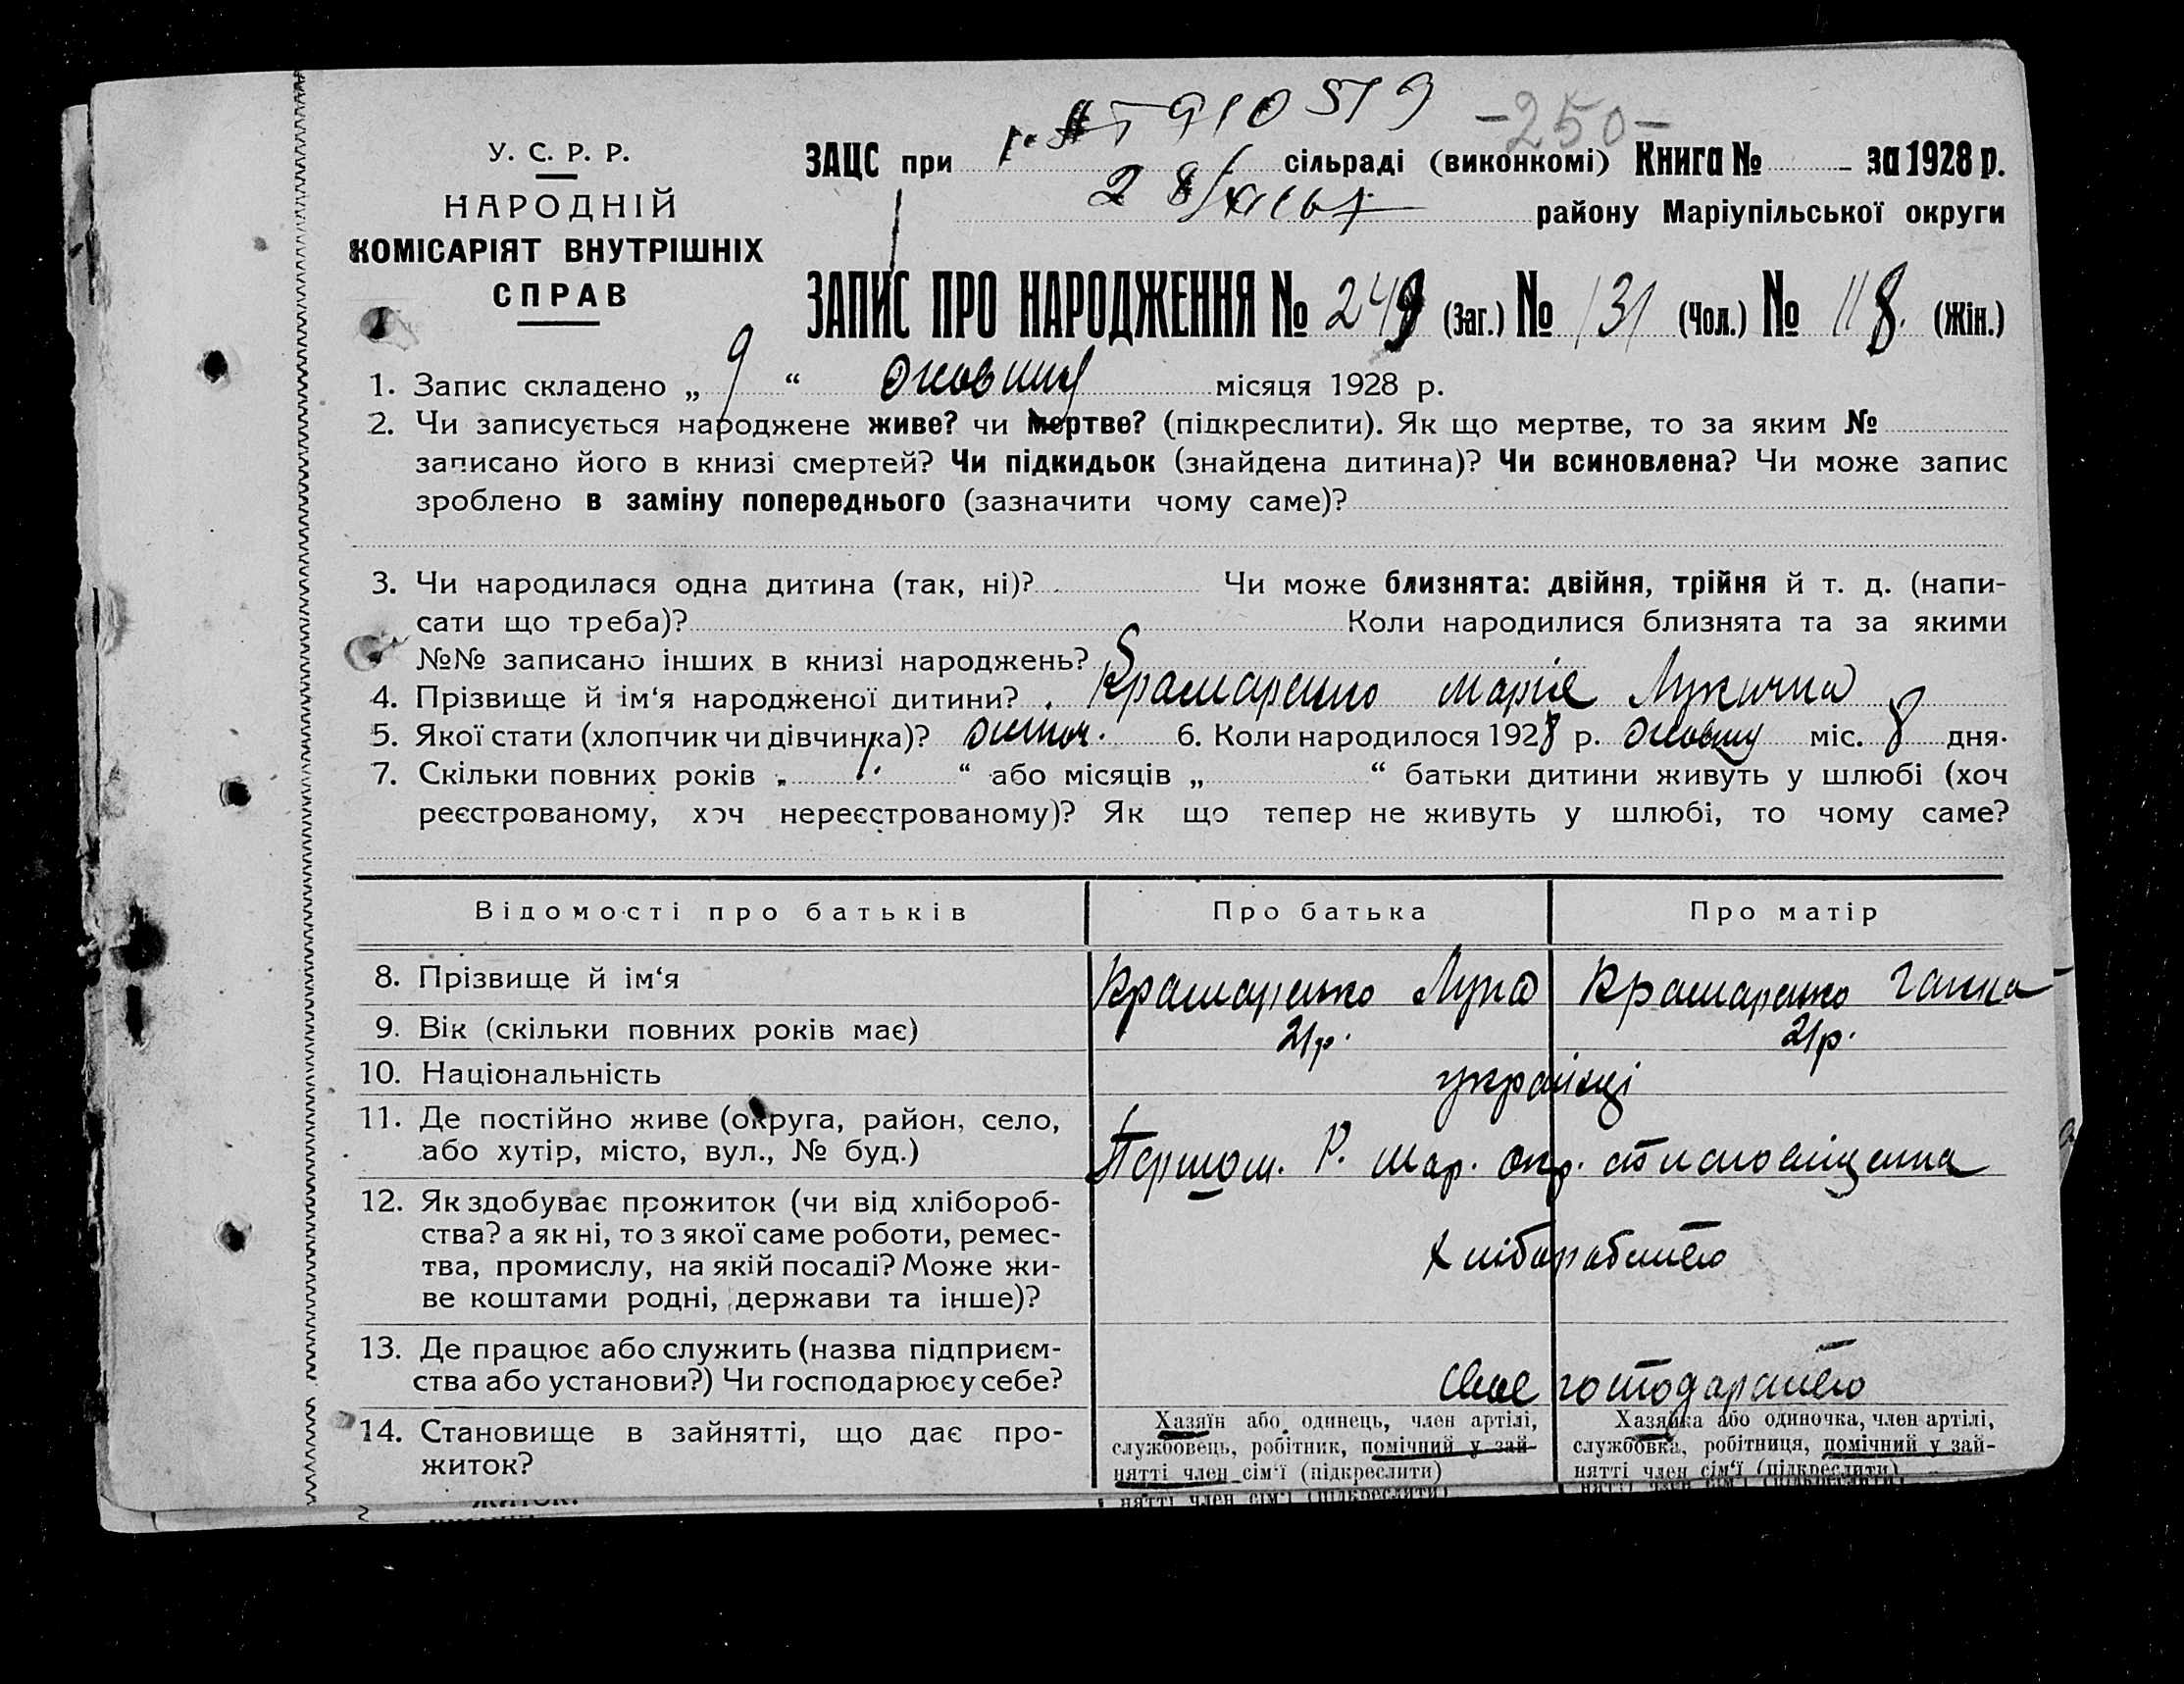 910519
-250-
У. С. Р. Р.
НАРОДНІЙ
КОМІСАРІЯТ ВНУТРІШНІХ
СПРАВ
ЗАЦС при сільраді (виконкомі) Книга № за 1928 р.
28/ району Маріупільської округи
ЗАПИС ПРО НАРОДЖЕННЯ № 249 (Заг.) № 131 (Чол.) № 118. (Жін.)
1. Запис складено „ 9 “ жовтня місяця 1928 р.
2. Чи записується народжене живе? чи мертве? (підкреслити). Як що мертве, то за яким №
записано його в книзі смертей? Чи підкидьок (знайдена дитина)? Чи всиновлена? Чи може запис
зроблено в заміну попереднього (зазначити чому саме)?
3. Чи народилася одна дитина (так, ні)? Чи може близнята: двійня, трійня й т. д. (напи-
сати що треба)? Коли народилися близнята та за якими
№№ записано інших в книзі народжень?
4. Прізвище й ім‘я народженої дитини? Крамаренко Марія Лукична
5. Якої стати (хлопчик чи дівчинка)? жіноч. 6. Коли народилося 1928 р. жовтня міс. 8 дня.
7. Скільки повних років „ 1. “ або місяців „ “ батьки дитини живуть у шлюбі (хоч
реєстрованому, хоч нереєстрованому)? Як що тепер не живуть у шлюбі, то чому саме?
Відомості про батьків Про батька Про матір
8. Прізвище й ім‘я Крамаренко Лука Крамаренко Ганна
9. Вік (скільки повних років має) 21р. 21р.
10. Національність українці
11. Де постійно живе (округа, район, село,
або хутір, місто, вул., № буд.) Першот. Р. Мар. окр.
12. Як здобуває прожиток (чи від хлібороб-
ства? а як ні, то з якої саме роботи, ремес-
тва, промислу, на якій посаді? Може жи-
ве коштами родні, держави та інше)?
13. Де працює або служить (назва підприєм-
ства або установи?) Чи господарює у себе?
14. Становище в зайнятті, що дає про-
житок?
Хазяїн або одинець, член артілі,
службовець, робітник, помічний у зай-
нятті член сім‘ї (підкреслити)
Хазяйка або одиночка, член артілі,
службовка, робітниця, помічний у зай-
нятті член сім‘ї (підкреслити)
нятті член сім‘ї (підкреслити)